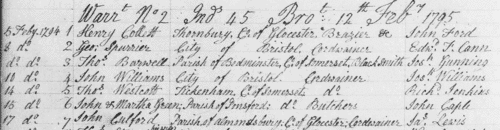 Warrt. No 2 Ind 45 Brot. 12th Feby. 1795
5 Feby. 1794 1 Henry Collett Thornbury, C. of Glocester Brazier &c John Ford
8 do. 2 Geo. Spurrier City of Bristol Cordwainer Edwd. T. Cann
do. do. 3 Thos. Barwell Parish of Bedminster, C. of Somerset, Black Smith Jos. Gunning
10 do. 4 John Williams City of Bristol Cordwainer Jos. Williams
14 do. 5 Thos. Westcott Tickenham, C. of Somerset do. Richd. Jenkins
15 do. 6 John & Martha Green, Parish of do. Butchers John Caple
17 do. 7 John Parish of almondsbury, C. of Glocester, Cordwainer Jas. Lewis